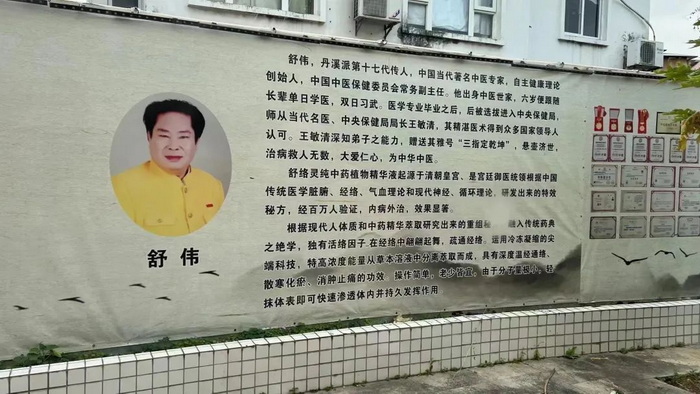 舒伟，丹溪派第十七代传人，中国当代著名中医专家，自主健康理论
创始人，中国中医保健委员会常务副主任。他出身中医世家，六岁便跟随
长辈单日学医，双日习武。医学专业毕业之后，后被选拔进入中央保健局，
师从当代名医、中央保健局局长王敏清，其精湛医术得到众多国家领导人
认可。王敏清深知弟子之能力，赠送其雅号“三指定乾坤”，悬壶济世，
治病救人无数，大爱仁心，为中华中医。
舒络灵纯中药植物精华液起源于清朝皇宫、是宫廷御医统领根据中国
传统医学脏腑、经络、气血理论和现代神经、循环理论，研发出来的特效
秘方，经百万人验证，内病外治，效果显著。
根据现代人体质和中药精华萃取研究出来的重组秘 融入传统药典
之绝学，独有活络因子在经络中翩翩起舞，疏通经络。运用冷冻凝缩的尖
端科技，特高浓度能量从草本溶液中分离萃取而成，具有深度温经通络、
散寒化瘀、消肿止痛的功效。操作简单，老少皆宜，由于分子量极小，轻
抹体表即可快速渗透体内并持久发挥作用
舒伟